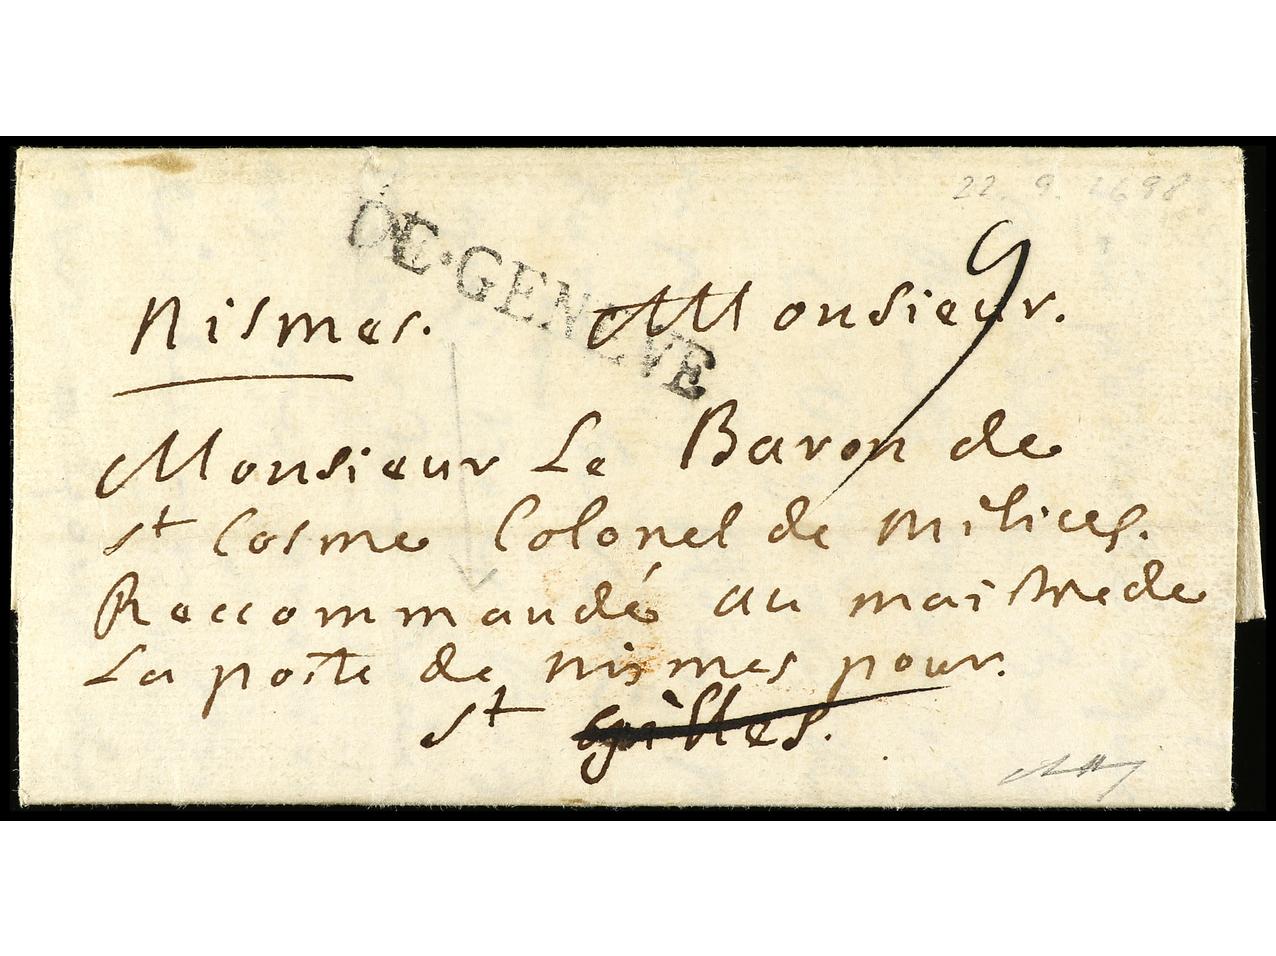 22. 9. 1698
DE·GENEVE
9
Nismes. Monsieur.
Monsieur Le Baron de
st Cosme Colonel de milices.
Reccommandé au maistre de
La poste de nismes pour.
st gilles.